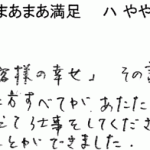 まあまあ満足　ハ やや
客様の幸せ」 その言
方すべてが、あたた
て仕事をしてくださ
ことができました.